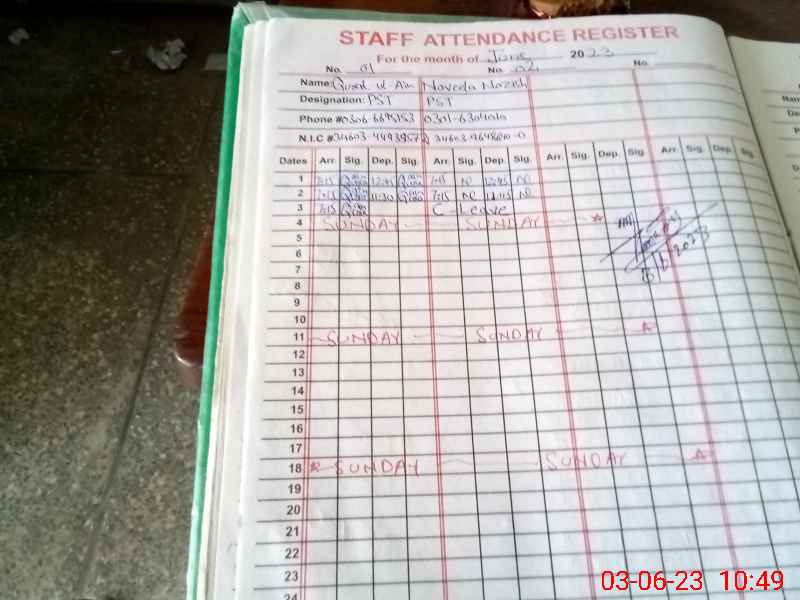 STAFF ATTENDANCE REGISTER
For the month of June 2023
No. 01 No. 02 No.
Name: Qurat ul Ain Naveda Nazish
Designation: PST PST
Phone # 0301-6304010
N.I.C #
Dates Arr. Sig. Dep. Sig. Arr. Sig. Dep. Sig. Arr. Sig. Dep. Sig. Arr. Sig. Dep. Sig.
1 7:15 12:45 7:15 12:45
2 7:15 11:30 7:15
3 7:15 C-Leave
4 SUNDAY SUNDAY
5
6
7
8 3/6/2023
9
10
11 SUNDAY SUNDAY
12
13
14
15
16
17
18 SUNDAY SUNDAY
19
20
21
22
23
24
03-06-23 10:49